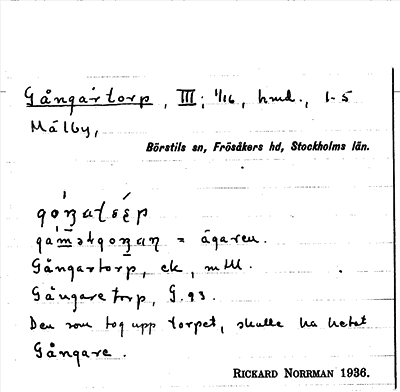 Gångartorp, III; 1/16, hmd., 1-5
Målby,
Börstils sn, Frösåkers hd, Stockholms län.
= ägaren.
Gångartorp, ek,
Gångare torp, G. 93.
Den som tog upp torpet, skulle ha hetat
Gångare.
RICKARD NORRMAN 1936.